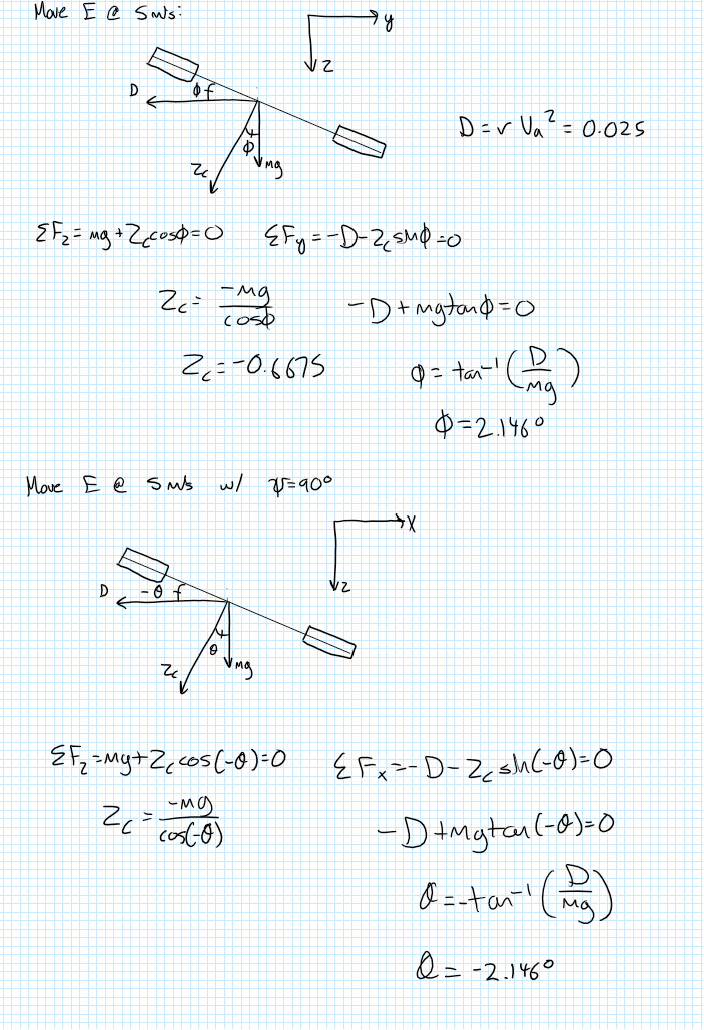 Move E @ 5 m/s:
y
z
D
ϕ
Zc
ϕ
mg
D = ν Va² = 0.025
ΣFz = mg + Zc cosϕ = 0    ΣFy = -D - Zc sinϕ = 0
Zc = -mg / cosϕ    -D + mg tanϕ = 0
Zc = -0.6675    ϕ = tan⁻¹ (D / mg)
ϕ = 2.146°
Move E @ 5 m/s w/ ψ = 90°
x
z
D
-θ
Zc
θ
mg
ΣFz = mg + Zc cos(-θ) = 0    ΣFx = -D - Zc sin(-θ) = 0
Zc = -mg / cos(-θ)    -D + mg tan(-θ) = 0
θ = -tan⁻¹ (D / mg)
θ = -2.146°